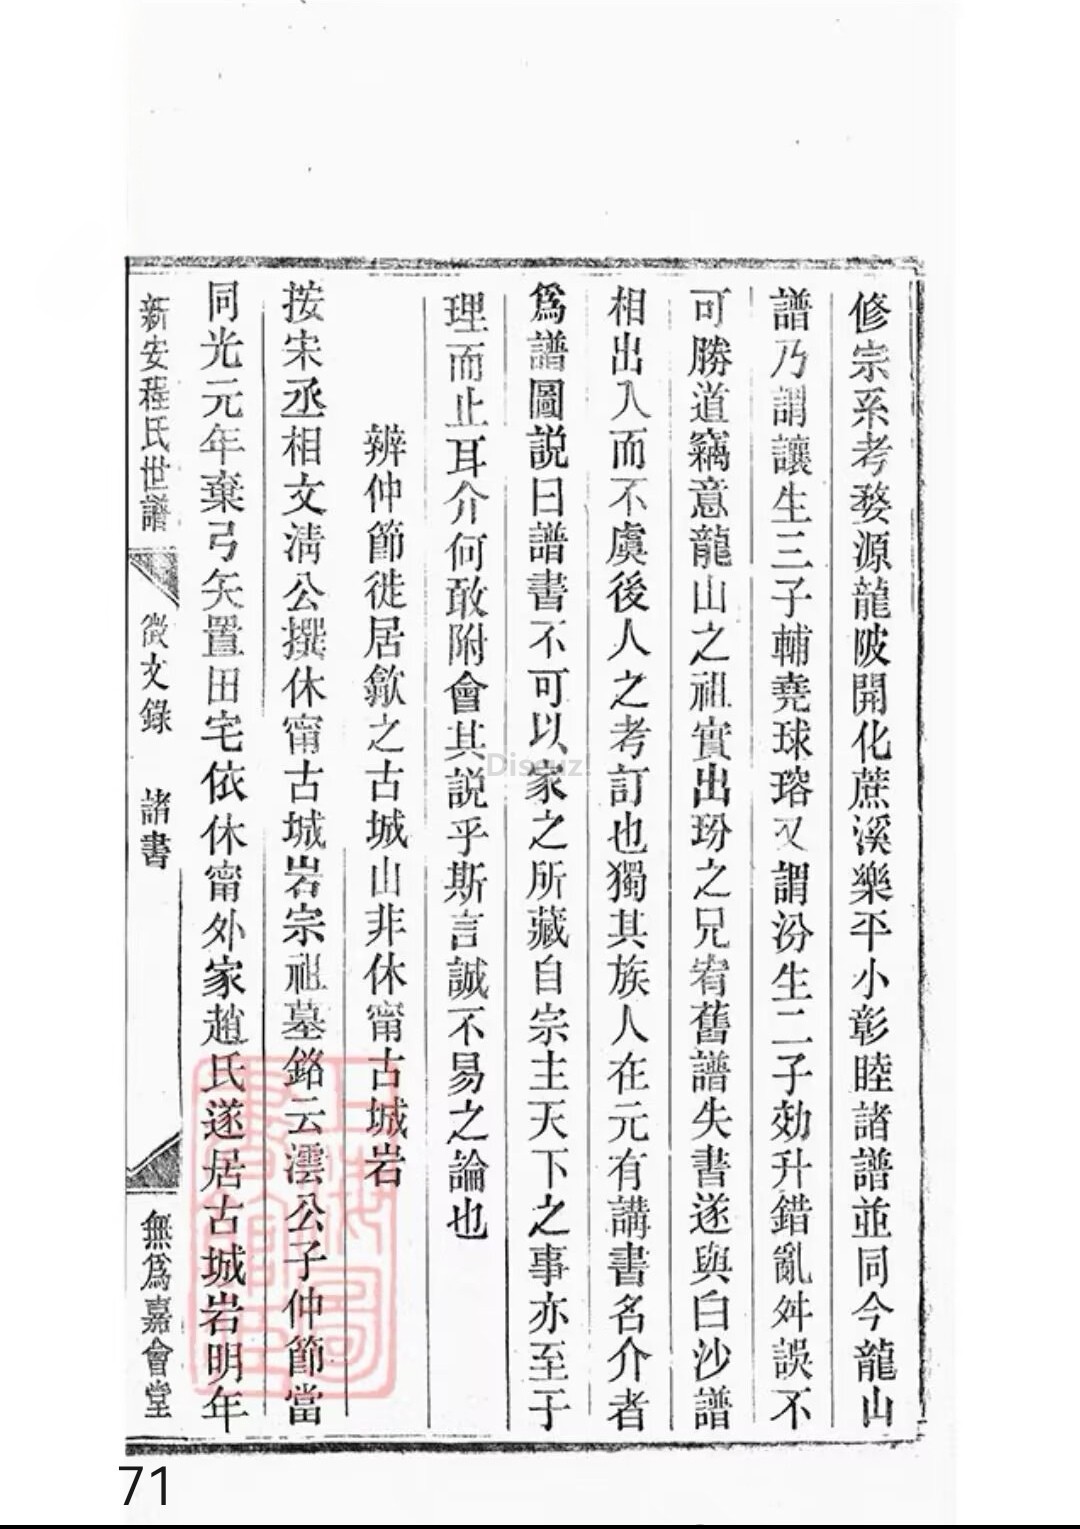 修宗系考婺源龍陂開化蔗溪樂平小彰睦諸譜並同今龍山
譜乃謂讓生三子輔堯球瑢又謂汾生二子効升錯亂舛誤不
可勝道竊意龍山之祖實出玢之兄宥舊譜失書遂與白沙譜
相出入而不虞後人之考訂也獨其族人在元有講書名介者
爲譜圖説曰譜書不可以家之所藏自宗主天下之事亦至于
理而止耳介何敢附會其説乎斯言誠不易之論也
辨仲節徙居歙之古城山非休甯古城岩
按宋丞相文淸公撰休甯古城岩宗祖墓銘云澐公子仲節當
同光元年棄弓矢置田宅依休甯外家趙氏遂居古城岩明年
新安程氏世譜 徵文錄 諸書 無爲嘉會堂
上海圖書館藏
Discuz!
71